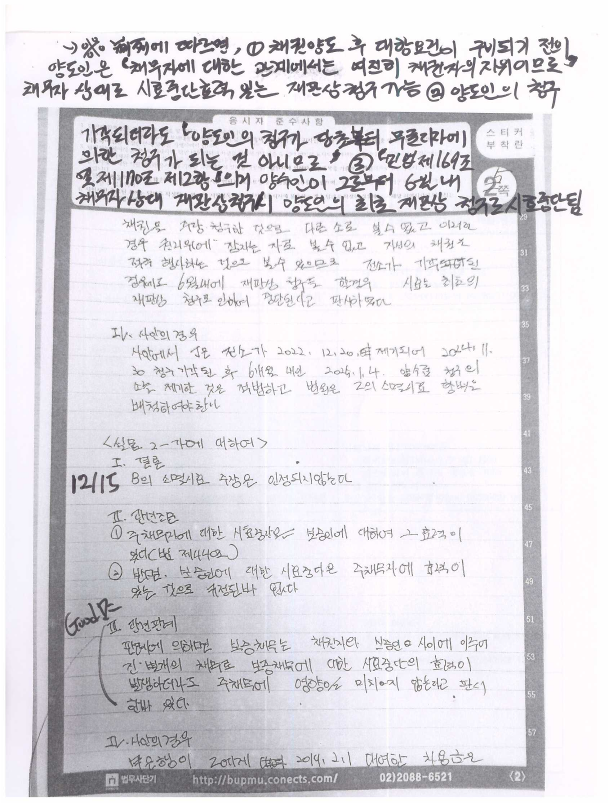 → 판례에 따르면, ① 채권양도 후 대항요건이 구비되기 전의
양도인은 "채무자에 대한 관계에서는 여전히 채권자의 지위이므로"
채무자 상대로 시효중단효력 있는 재판상청구 가능 ② 양도인의 청구
응시자 준수사항
스티커
부착란
기각되더라도 "양도인의 청구가 당초부터 무권리자에
의한 청구가 되는 건 아니므로" ③ "민법 제169조
및 제170조 제2항"의거 양수인이 그로부터 6월 내
채무자 상대 재판상 청구시 양도인의 최초 재판상 청구로 시효중단됨
쪽
29
채권을 청구한 것으로 다른 소로 볼 수 없고 이러한
경우 권리위에 잠자는 자로 볼 수 없고 채권을
31
행사하는 것으로 볼 수 있으므로 전소가 기각되더라도
6월내에 재판상 청구를 한경우 시효는 최초의
33
재판상 청구로 인하여 중단된다고 판시하였다
35
Ⅳ. 사안의 경우
사안에서 전소가 2022. 12. 20. 제기되어 2024. 11.
37
30 청구기각된 후 6개월 내인 2025. 1. 4. 양수금 청구의
소를 제기한 것은 적법하고 법원은 乙의 소멸시효 항변을
39
배척하여야한다
41
<설문 2-가에 대하여>
43
Ⅰ. 결론
12/15 B의 소멸시효 주장은 인정되지않는다
45
Ⅱ. 관련조문
47
① 주채무자에 대한 시효중단은 보증인에 대하여 그 효력이
있다(법 제440조)
49
② 반면, 보증인에 대한 시효중단은 주채무자에 효력이
있는 것으로 규정된바 없다
51
Good!
Ⅲ. 관련판례
판례에 의하면 보증채무는 채권자와 보증인 사이에 이루어
53
진 별개의 채무로 보증채무에 대한 시효중단의 효력이
발생하더라도 주채무에 영향을 미치지 않는다고 판시
55
한바 있다.
57
Ⅳ. 사안의경우
2014. 2. 1 대여한 차용금은
법무사단기
http://bupmu.conects.com/
02)2088-6521
<2>